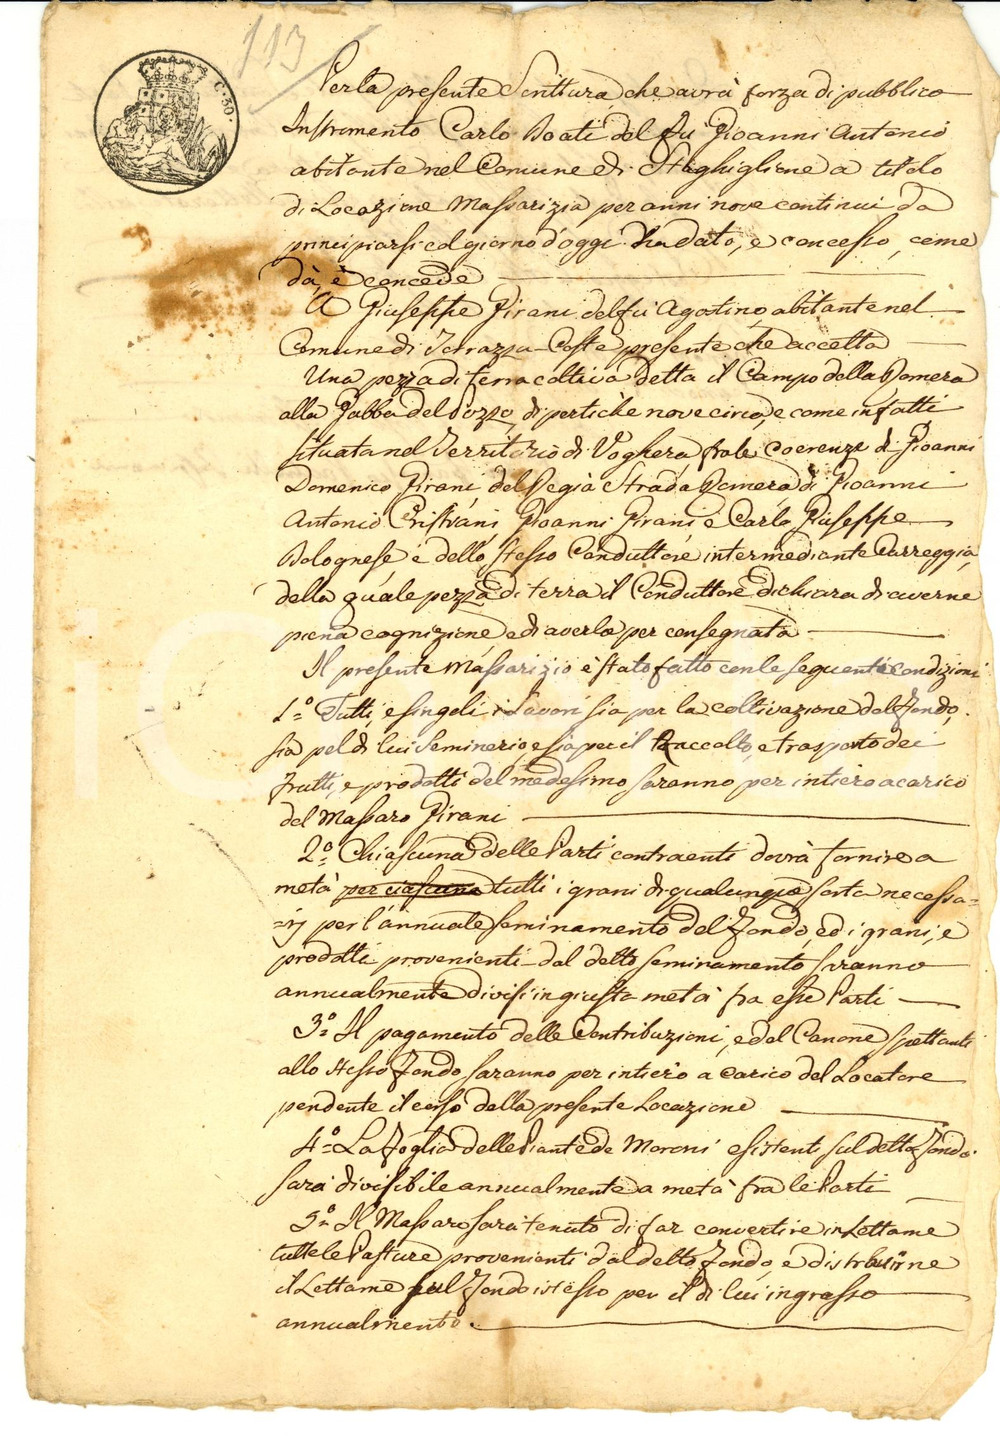 113
C. 30.
Per la presente Scrittura, che avrà forza di pubblico
Instromento Carlo Boati del fu Gioanni Antonio
abitante nel Comune di Staghiglione a titolo
di Locazione Massarizia per anni nove continui da
principiarsi col giorno d'oggi ha dato, e concesso, come
dà, è concede
A Giuseppe Pirani del fù Agostino abitante nel
Comune di Torrazza Coste presente che accetta
Una pezza di terra coltiva detta il Campo della Romera
alla Gabba del Pozzo, di pertiche nove circa, e come in fatti
situata nel Territorio di Voghera fra le coerenze di Gioanni
Domenico Pirani del Regia Strada Romera di Gioanni
Antonio Cristiani, Gioanni Pirani e Carlo Giuseppe
Bolognese, e dello stesso Conduttore intermediante Carreggia,
della quale pezza di terra il Conduttore dichiara di averne
piena cognizione e di averla per consegnata
Il presente Massarizio è stato fatto con le seguenti condizioni
1.° Tutti, e singoli i Lavori sia per la coltivazione del Fondo,
sia pel di lui Seminerio, e sia per il Raccolto, e trasporto dei
frutti, e prodotti del medessimo saranno per intiero a carico
del Massaro Pirani
2.° Chiascuna delle Parti contraenti dovrà fornire a
metà per ciascuna tutti i grani di qualunque sorta necessa=
=rj per l'annuale seminamento del Fondo, ed i grani, e
prodotti provenienti dal detto seminamento saranno
annualmente divisi in giusta metà fra esse Parti
3.° Il pagamento delle Contribuzioni, e del Canone spettanti
allo stesso Fondo saranno per intiero a carico del Locatore
pendente il corso della presente Locazione
4.° La Foglia delle Piante de Moroni esistenti sul detto Fondo
sarà divisibile annualmente a metà fra le Parti
5.° Il Massaro sarà tenuto di far convertire in Lettame
tutte le Pasture provenienti dal detto Fondo, e distribuirne
il Lettame sul Fondo istesso per il di lui ingrasso
annualmento.